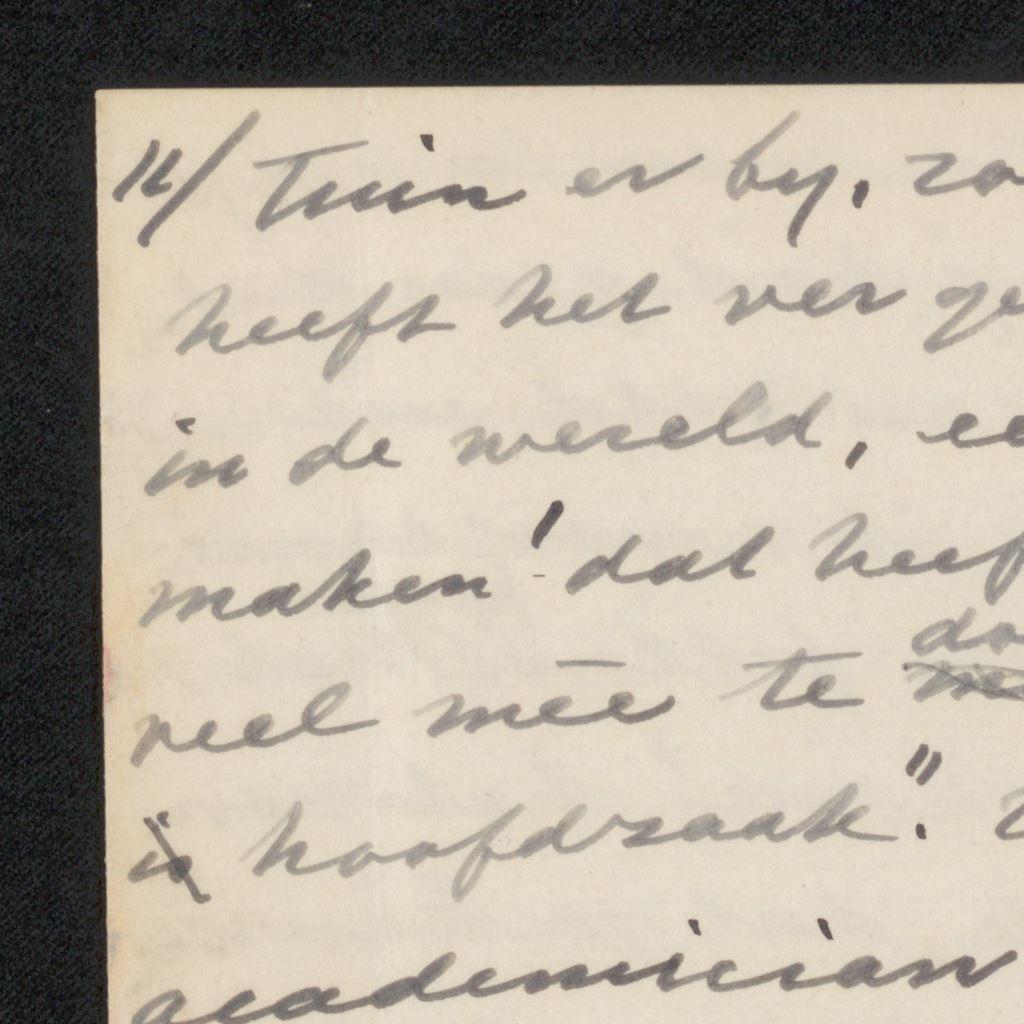 12/ Tuin er by, zo
heeft het ver ge
in de wereld, ee
maken! dat heef
do
veel mēe te me
is hoofdzaak".
academician